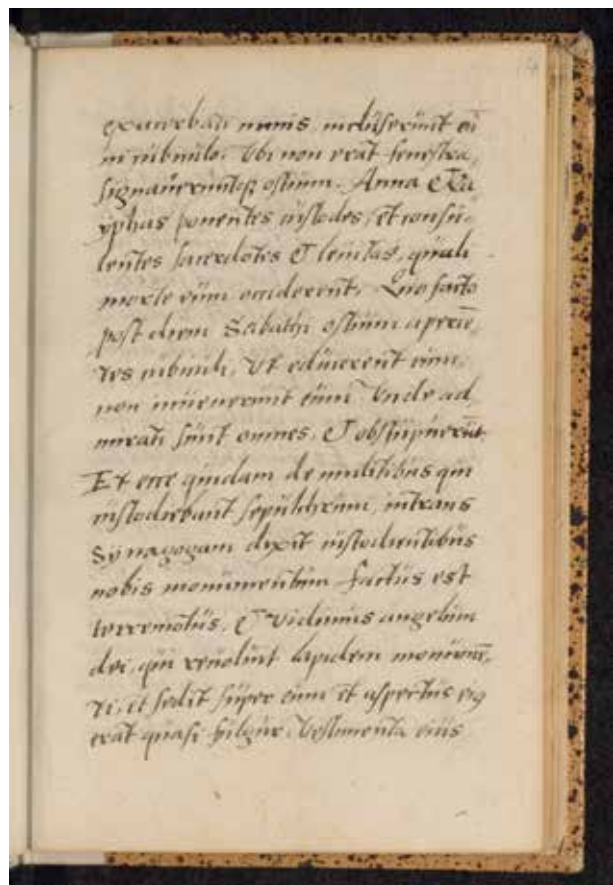 14
exacerbati nimis, incluserunt eū
in cubiculo. Ubi non erat fenestra,
signaveruntqȝ ostium. Anna & Ca
yphas ponentes custodes, et consu-
lentes sacerdotes & levitas, quali
morte eum occiderent. Quo facto
post diem Sabathi ostium aperiē,
tes cubiculi, Ut educerent eum,
non invenerunt eum Unde ad
mirati sunt omnes, & obstupuerūt
Et ecce quidam de militibus qui
custodiebant sepulchrum, intrans
Synagogam dixit custodientibus
nobis monumentum factus est
terremotus, & vidimus angelum
dei, qui revolvit lapidem monumē,
ti, et sedit super eum et aspectus eiꝰ
erat quasi fulgur. Vestimenta eius